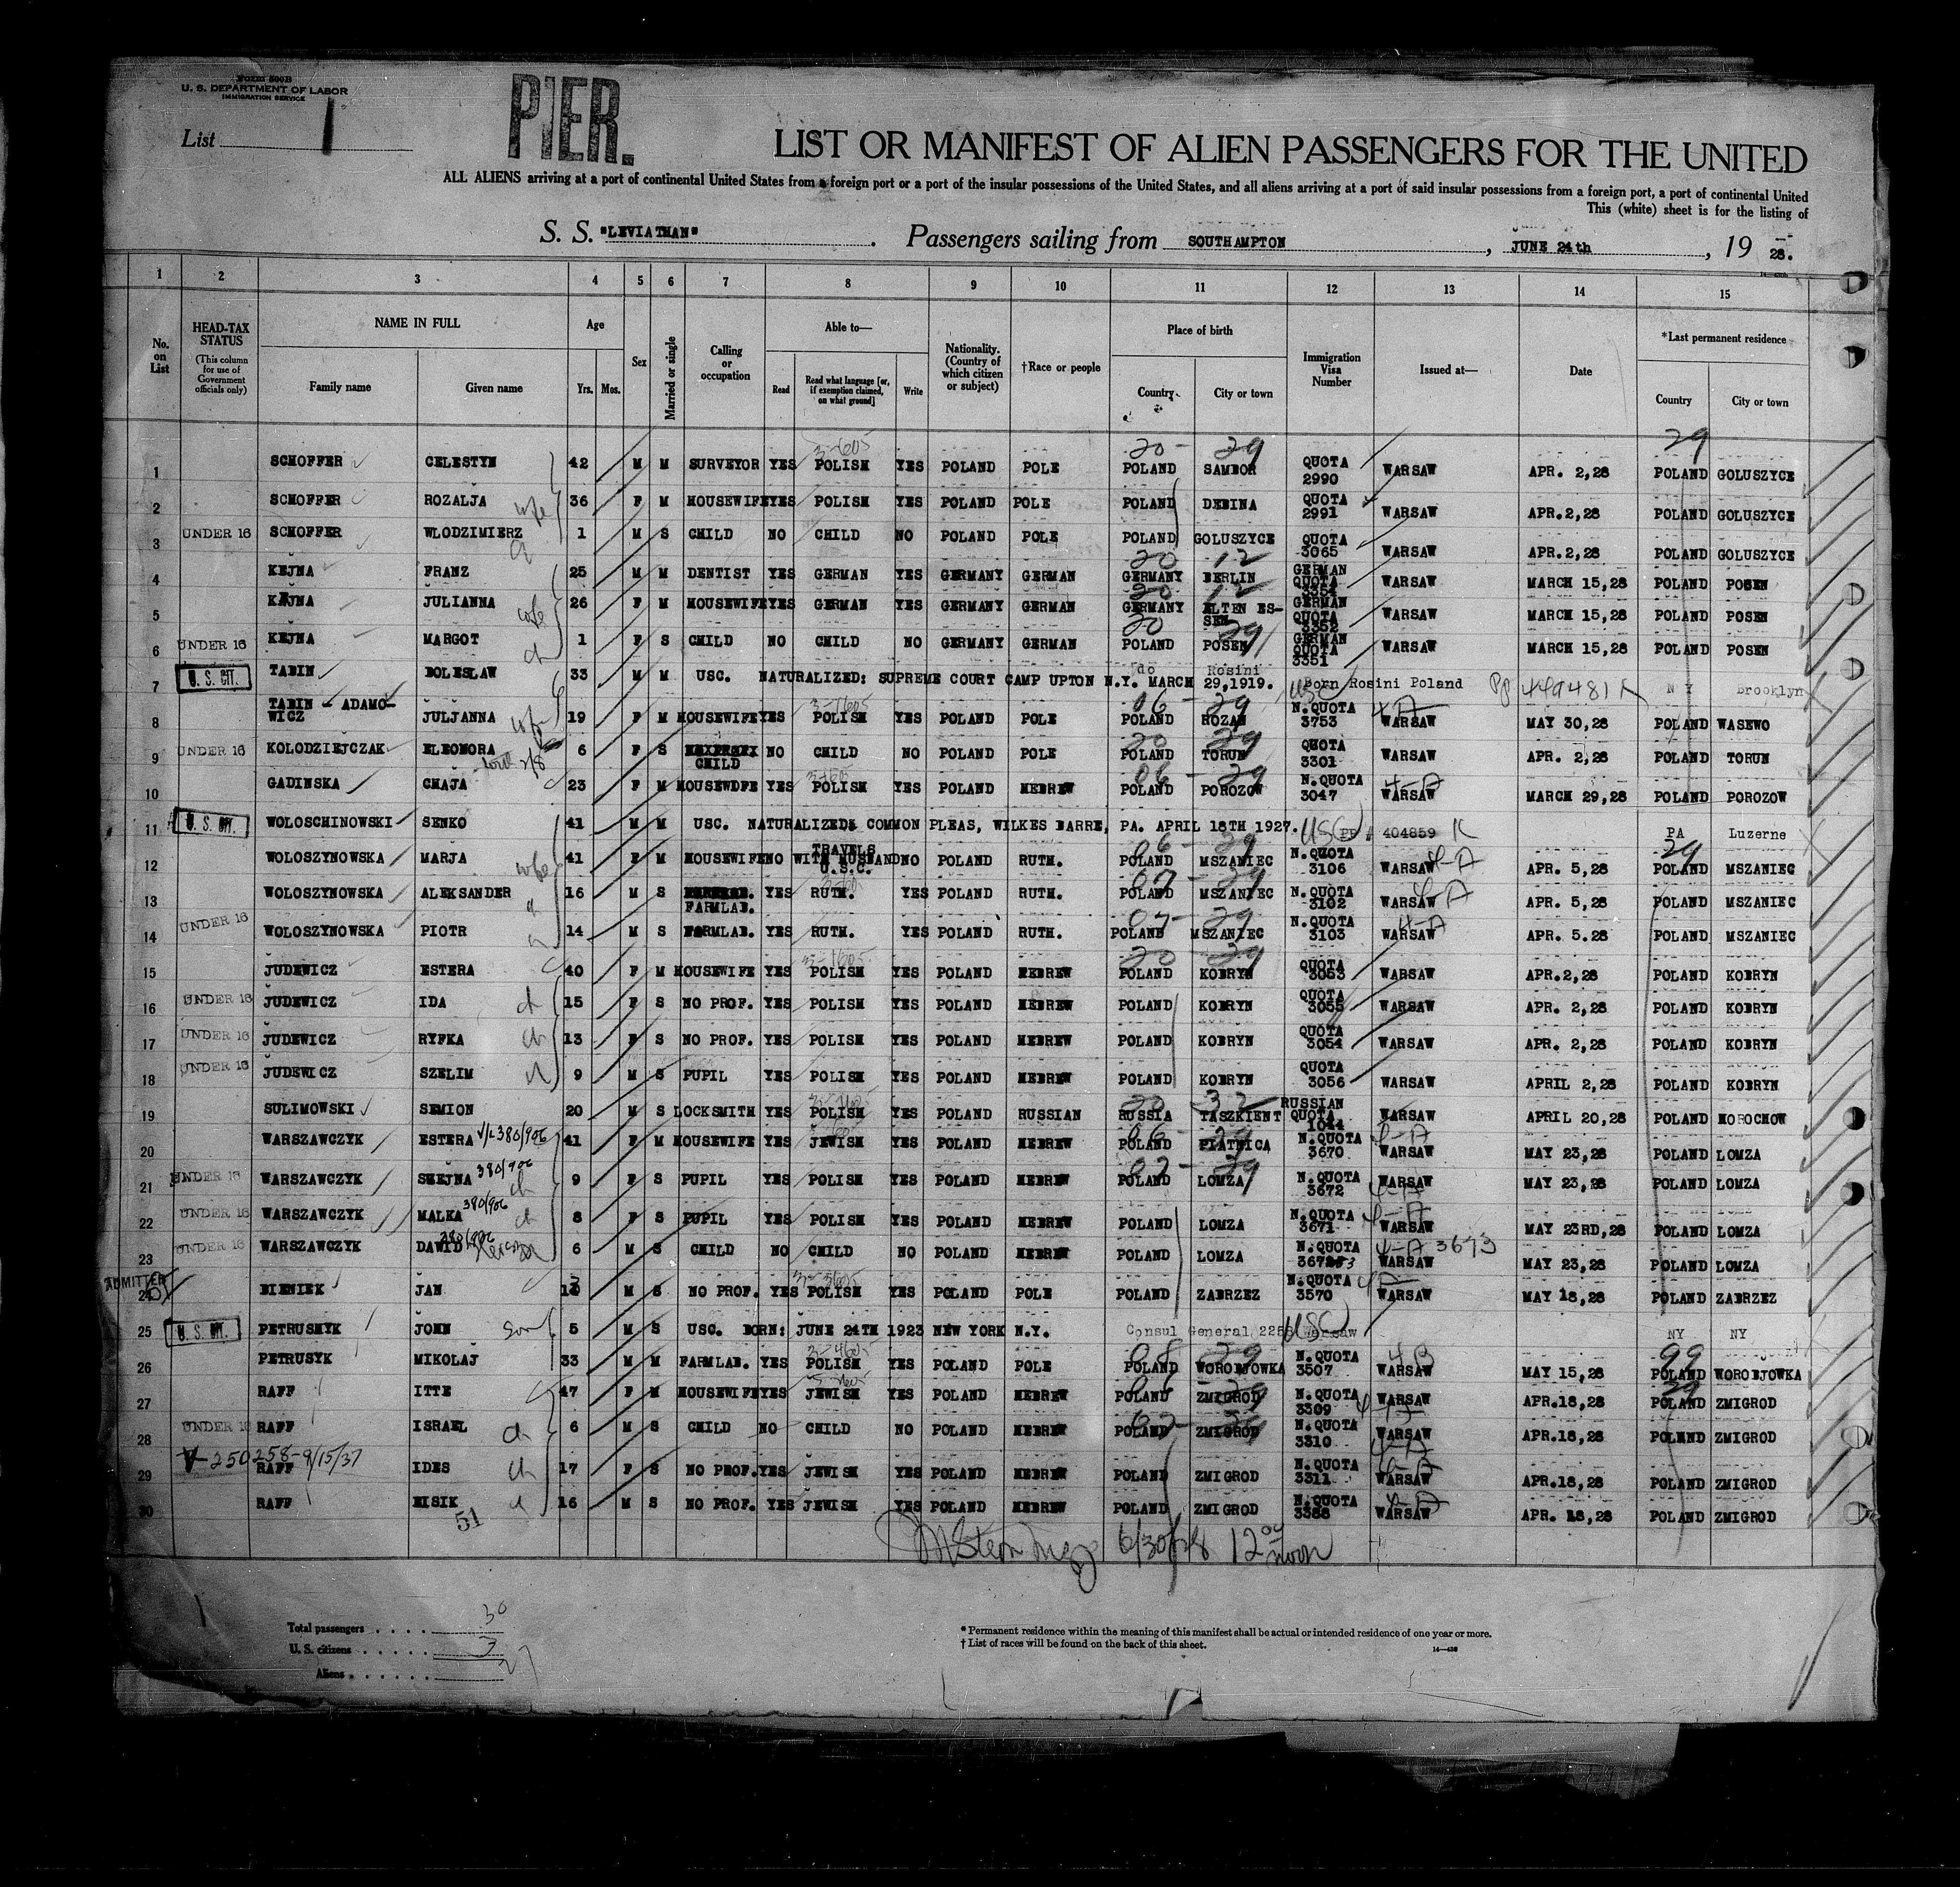 Form 500B
U. S. DEPARTMENT OF LABOR
IMMIGRATION SERVICE
List 1
PIER.
LIST OR MANIFEST OF ALIEN PASSENGERS FOR THE UNITED
ALL ALIENS arriving at a port of continental United States from a foreign port or a port of the insular possessions of the United States, and all aliens arriving at a port of said insular possessions from a foreign port, a port of continental United
This (white) sheet is for the listing of
S. S. "LEVIATHAN". Passengers sailing from SOUTHAMPTON, JUNE 24th, 19 28.
1 2 3 4 5 6 7 8 9 10 11 12 13 14 15
No. on List
HEAD-TAX STATUS (This column for use of Government officials only)
NAME IN FULL
Family name Given name
Age
Yrs. Mos.
Sex
Married or single
Calling or occupation
Able to—
Read Read what language [or, if exemption claimed, on what ground] Write
Nationality. (Country of which citizen or subject)
†Race or people
Place of birth
Country City or town
Immigration Visa Number
Issued at—
Date
*Last permanent residence
Country City or town
1 SCHOFFER CELESTYN 42 M M SURVEYOR YES POLISH YES POLAND POLE POLAND SAMBOR QUOTA 2990 WARSAW APR. 2,28 POLAND GOLUSZYCE
2 SCHOFFER ROZALJA wife 36 F M HOUSEWIFE YES POLISH YES POLAND POLE POLAND DEBINA QUOTA 2991 WARSAW APR.2,28 POLAND GOLUSZYCE
3 UNDER 16 SCHOFFER WLODZIMIERZ 1 M S CHILD NO CHILD NO POLAND POLE POLAND GOLUSZYCE QUOTA 3065 WARSAW APR.2,28 POLAND GOLUSZYCE
4 KEJNA FRANZ 25 M M DENTIST YES GERMAN YES GERMANY GERMAN GERMANY BERLIN GERMAN QUOTA 3354 WARSAW MARCH 15,28 POLAND POSEN
5 KEJNA JULIANNA wife 26 F M HOUSEWIFE YES GERMAN YES GERMANY GERMAN GERMANY ALTEN ES-SEN GERMAN QUOTA 3352 WARSAW MARCH 15,28 POLAND POSEN
6 UNDER 16 KEJNA MARGOT ch 1 F S CHILD NO CHILD NO GERMANY GERMAN POLAND POSEN GERMAN QUOTA 3351 WARSAW MARCH 15,28 POLAND POSEN
7 U. S. CIT. TABIN BOLESLAW 33 M M USC. NATURALIZED: SUPREME COURT CAMP UPTON N.Y. MARCH 29,1919. do Rosini Born Rosini Poland USC PP 449481 N Y Brooklyn
8 TABIN - ADAMO-WICZ JULJANNA wife 19 F M HOUSEWIFE YES POLISH YES POLAND POLE POLAND ROZAN N.QUOTA 3753 WARSAW MAY 30,28 POLAND WASEWO
9 UNDER 16 KOLODZIEJCZAK ELEONORA 6 F S CHILD NO CHILD NO POLAND POLE POLAND TORUN QUOTA 3301 WARSAW APR. 2,28 POLAND TORUN
10 GADINSKA CHAJA 23 F M HOUSEWDFE YES POLISH YES POLAND HEBREW POLAND POROZOW N.QUOTA 3047 WARSAW MARCH 29,28 POLAND POROZOW
11 U. S. CIT. WOLOSCHINOWSKI SENKO 41 M M USC. NATURALIZED: COMMON PLEAS, WILKES BARRE, PA. APRIL 18TH 1927. USC PP 404859 PA Luzerne
12 WOLOSZYNOWSKA MARJA wife 41 F M HOUSEWIFE NO TRAVELS WITH HUSBAND U.S.C. NO POLAND RUTH. POLAND MSZANIEC N.QUOTA 3106 WARSAW APR. 5,28 POLAND MSZANIEC
13 WOLOSZYNOWSKA ALEKSANDER 16 M S FARMLAB. YES RUTH. YES POLAND RUTH. POLAND MSZANIEC N.QUOTA 3102 WARSAW APR. 5,28 POLAND MSZANIEC
14 UNDER 16 WOLOSZYNOWSKA PIOTR 14 M S FARMLAB. YES RUTH. YES POLAND RUTH. POLAND MSZANIEC N.QUOTA 3103 WARSAW APR. 5.28 POLAND MSZANIEC
15 JUDEWICZ ESTERA 40 F M HOUSEWIFE YES POLISH YES POLAND HEBREW POLAND KOBRYN QUOTA 3053 WARSAW APR.2,28 POLAND KOBRYN
16 UNDER 16 JUDEWICZ IDA ch 15 F S NO PROF. YES POLISH YES POLAND HEBREW POLAND KOBRYN QUOTA 3055 WARSAW APR. 2,28 POLAND KOBRYN
17 UNDER 16 JUDEWICZ RYFKA ch 13 F S NO PROF. YES POLISH YES POLAND HEBREW POLAND KOBRYN QUOTA 3054 WARSAW APR. 2,28 POLAND KOBRYN
18 UNDER 16 JUDEWICZ SZELIM ch 9 M S PUPIL YES POLISH YES POLAND HEBREW POLAND KOBRYN QUOTA 3056 WARSAW APRIL 2,28 POLAND KOBRYN
19 SULIMOWSKI SEMION 20 M S LOCKSMITH YES POLISH YES POLAND RUSSIAN RUSSIA TASZKIENT RUSSIAN QUOTA 1044 WARSAW APRIL 20,28 POLAND HOROCHOW
20 WARSZAWCZYK ESTERA V/L 380/906 41 F M HOUSEWIFE YES JEWISH YES POLAND HEBREW POLAND PIATNICA N.QUOTA 3670 WARSAW MAY 23,28 POLAND LOMZA
21 UNDER 16 WARSZAWCZYK SZEJNA 380/906 ch 9 F S PUPIL YES POLISH YES POLAND HEBREW POLAND LOMZA N.QUOTA 3672 WARSAW MAY 23,28 POLAND LOMZA
22 UNDER 16 WARSZAWCZYK MALKA 380/906 ch 8 F S PUPIL YES POLISH YES POLAND HEBREW POLAND LOMZA N.QUOTA 3671 WARSAW MAY 23RD,28 POLAND LOMZA
23 UNDER 16 WARSZAWCZYK DAWID 380/906 6 M S CHILD NO CHILD NO POLAND HEBREW POLAND LOMZA N.QUOTA 3673 WARSAW 4-A 3673 MAY 23,28 POLAND LOMZA
ADMITTED
24 BIENIEK JAN M S NO PROF. YES POLISH YES POLAND POLE POLAND ZABRZEZ N.QUOTA 3570 WARSAW MAY 18,28 POLAND ZABRZEZ
25 U. S. CIT. PETRUSHYK JOHN son 5 M S USC. BORN: JUNE 24TH 1923 NEW YORK N.Y. Consul General 2256 Warsaw USC NY NY
26 PETRUSYK MIKOLAJ 33 M M FARMLAB. YES POLISH YES POLAND POLE POLAND WOROBJOWKA N.QUOTA 3507 WARSAW MAY 15,28 POLAND WOROBJOWKA
27 RAFF ITTE 47 F M HOUSEWIFE YES JEWISH YES POLAND HEBREW POLAND ZMIGROD N.QUOTA 3309 WARSAW APR.18,28 POLAND ZMIGROD
28 UNDER 16 RAFF ISRAEL ch 6 M S CHILD NO CHILD NO POLAND HEBREW POLAND ZMIGROD N.QUOTA 3310 WARSAW APR.18,28 POLAND ZMIGROD
V-250258-9/15/37
29 RAFF IDES ch 17 F S NO PROF. YES JEWISH YES POLAND HEBREW POLAND ZMIGROD N.QUOTA 3311 WARSAW APR.18,28 POLAND ZMIGROD
30 RAFF HISIK 16 M S NO PROF. YES JEWISH YES POLAND HEBREW POLAND ZMIGROD N.QUOTA 3388 WARSAW APR. 18,28 POLAND ZMIGROD
51
6/30/28 12 00 noon
Total passengers 30
U. S. citizens 3
Aliens 27
* Permanent residence within the meaning of this manifest shall be actual or intended residence of one year or more.
† List of races will be found on the back of this sheet.
14—438